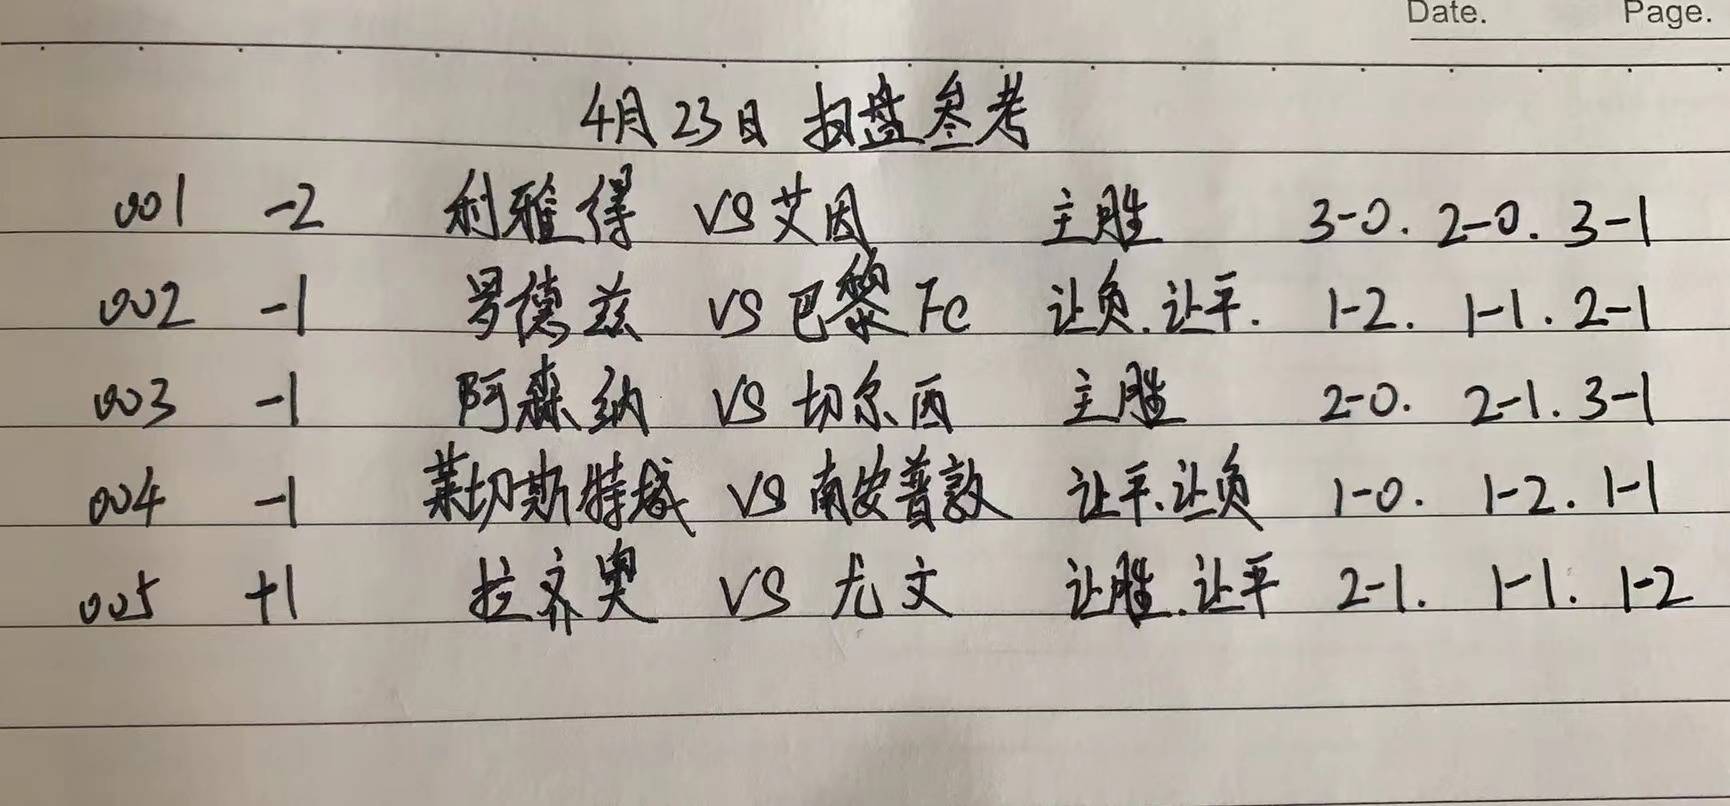 Date. Page.
4月23日 扫盘参考
001 -2 利雅得 VS 艾因 主胜 3-0. 2-0. 3-1
002 -1 罗德兹 VS 巴黎FC 让负.让平. 1-2. 1-1. 2-1
003 -1 阿森纳 VS 切尔西 主胜 2-0. 2-1. 3-1
004 -1 莱切斯特城 VS 南安普敦 让平.让负 1-0. 1-2. 1-1
005 +1 拉齐奥 VS 尤文 让胜.让平 2-1. 1-1. 1-2